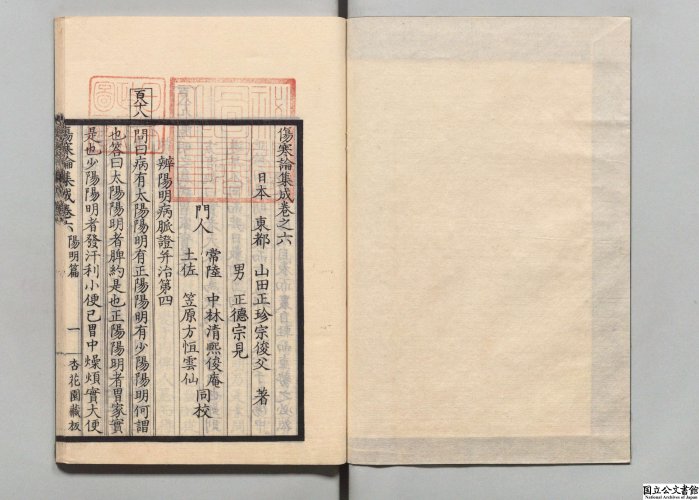 傷寒論集成卷之六
日本 東都 山田正珍宗俊父 著
男 正德宗見
門人
常陸 中林清熙俊庵
土佐 笠原方恒雲仙
同校
辨陽明病脈證并治第四
百十八
問曰病有太陽陽明有正陽陽明有少陽陽明何謂
也答曰太陽陽明者脾約是也正陽陽明者胃家實
是也少陽陽明者發汗利小便已胃中燥煩實大便
傷寒論集成卷六 陽明篇 一 杏花園藏板
国立公文書館
National Archives of Japan